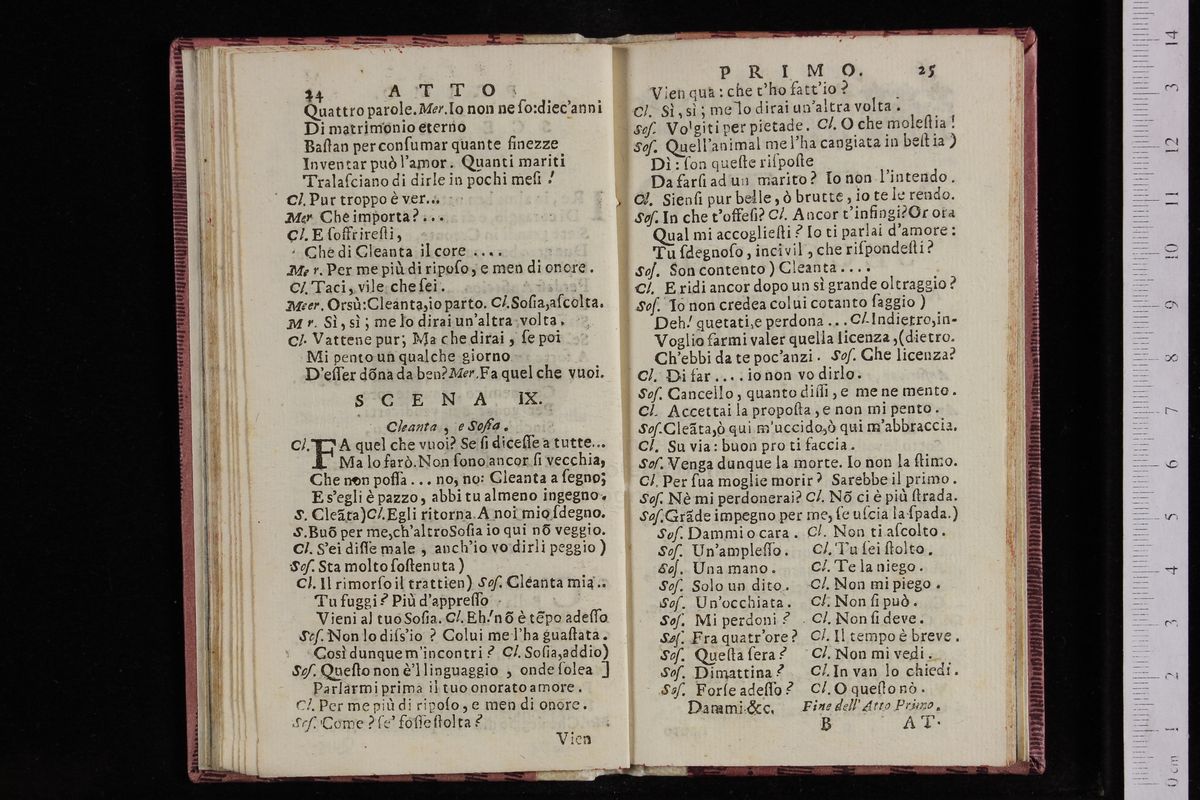 24 ATTO
Quattro parole. Mer. Io non ne so: diec'anni
Di matrimonio eterno
Baſtan per conſumar quante finezze
Inventar può l'amor. Quanti mariti
Tralaſciano di dirle in pochi meſi !
Cl. Pur troppo è ver...
Mer Che importa?...
Cl. E ſoffrireſti,
Che di Cleanta il core ....
Mer. Per me più di ripoſo, e men di onore.
Cl. Taci, vile che ſei.
Meer. Orsù: Cleanta, io parto. Cl. Soſia, aſcolta.
M r. Sì, sì; me lo dirai un'altra volta.
Cl. Vattene pur; Ma che dirai, ſe poi
Mi pento un qualche giorno
D'eſſer dõna da ben? Mer. Fa quel che vuoi.
SCENA IX.
Cleanta, e Soſia.
Cl. FA quel che vuoi? Se ſi diceſſe a tutte...
Ma lo farò. Non ſono ancor ſi vecchia,
Che non poſſa ... no, no: Cleanta a ſegno;
E s'egli è pazzo, abbi tu almeno ingegno.
S. Cleãta) Cl. Egli ritorna. A noi mio ſdegno.
S. Buõ per me, ch'altro Soſia io qui nõ veggio.
Cl. S'ei diſſe male, anch'io vo dirli peggio )
Soſ. Sta molto ſoſtenuta )
Cl. Il rimorſo il trattien) Soſ. Cleanta mia...
Tu fuggi? Più d'appreſſo
Vieni al tuo Soſia. Cl. Eh! nõ è tẽpo adeſſo
Soſ. Non lo diſs'io ? Colui me l'ha guaſtata.
Così dunque m'incontri? Cl. Soſia, addio)
Soſ. Queſto non è'l linguaggio, onde ſolea ]
Parlarmi prima il tuo onorato amore.
Cl. Per me più di ripoſo, e men di onore.
Soſ. Come? ſe' foſſe ſtolta?
Vien
PRIMO. 25
Vien quà: che t'ho fatt'io ?
Cl. Sì, sì; me lo dirai un'altra volta.
Soſ. Volgiti per pietade. Cl. O che moleſtia !
Soſ. Quell'animal me l'ha cangiata in beſtia )
Dì: ſon queſte riſpoſte
Da farſi ad un marito? Io non l'intendo.
Cl. Sienſi pur belle, ò brutte, io te le rendo.
Soſ. In che t'offeſi? Cl. Ancor t'infingi? Or ora
Qual mi accoglieſti? Io ti parlai d'amore:
Tu ſdegnoſo, incivil, che riſpondeſti?
Soſ. Son contento) Cleanta....
Cl. E ridi ancor dopo un sì grande oltraggio?
Soſ. Io non credea colui cotanto ſaggio )
Deh! quetati, e perdona ... Cl. Indietro, in-
Voglio farmi valer quella licenza, (dietro.
Ch'ebbi da te poc'anzi. Soſ. Che licenza?
Cl. Di far.... io non vo dirlo.
Soſ. Cancello, quanto diſſi, e me ne mento.
Cl. Accettai la propoſta, e non mi pento.
Soſ. Cleãta, ò qui m'uccido, ò qui m'abbraccia.
Cl. Su via: buon pro ti faccia.
Soſ. Venga dunque la morte. Io non la ſtimo.
Cl. Per ſua moglie morir? Sarebbe il primo.
Soſ. Nè mi perdonerai? Cl. Nõ ci è più ſtrada.
Soſ. Grãde impegno per me, ſe uſcia la ſpada.)
Soſ. Dammi o cara. Cl. Non ti aſcolto.
Soſ. Un'ampleſſo. Cl. Tu ſei ſtolto.
Soſ. Una mano. Cl. Te la niego.
Soſ. Solo un dito. Cl. Non mi piego.
Soſ. Un'occhiata. Cl. Non ſi può.
Soſ. Mi perdoni? Cl. Non ſi deve.
Soſ. Fra quatr'ore? Cl. Il tempo è breve.
Soſ. Queſta ſera? Cl. Non mi vedi.
Soſ. Dimattina? Cl. In van lo chiedi.
Soſ. Forſe adeſſo? Cl. O queſto nò.
Dammi &c. Fine dell'Atto Primo.
B AT-
0 cm 1 2 3 4 5 6 7 8 9 10 11 12 13 14